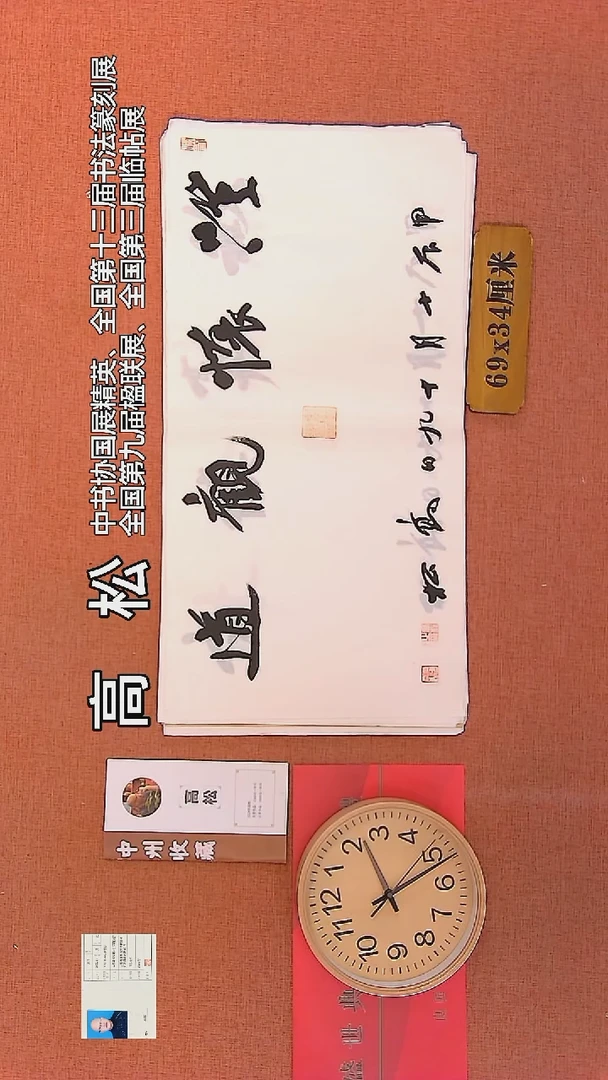 高 松
中书协国展精英、全国第十三届书法篆刻展
全国第九届楹联展、全国第三届临帖展
澄懷觀道
甲辰十月十九日高松
69x34厘米
高松
中州收藏
12
1
2
3
4
5
6
7
8
9
10
11
盛世典